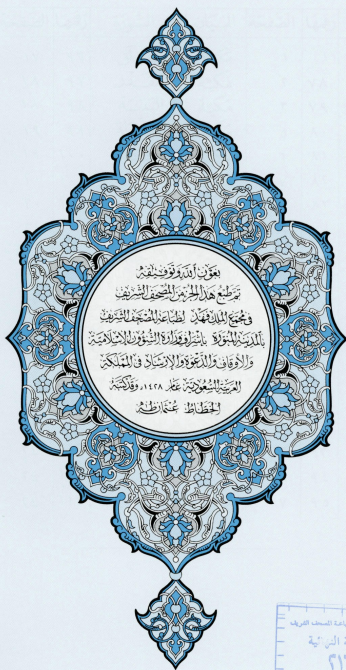 بعون الله وتوفيقه
تم طبع هذا الجزء من المصحف الشريف
في مجمع الملك فهد لطباعة المصحف الشريف
بالمدينة المنورة بإشراف وزارة الشؤون الإسلامية
والأوقاف والدعوة والإرشاد في المملكة
العربية السعودية عام ١٤٢٨، وقد كتبه
الخطاط عثمان طه
لطباعة المصحف الشريف